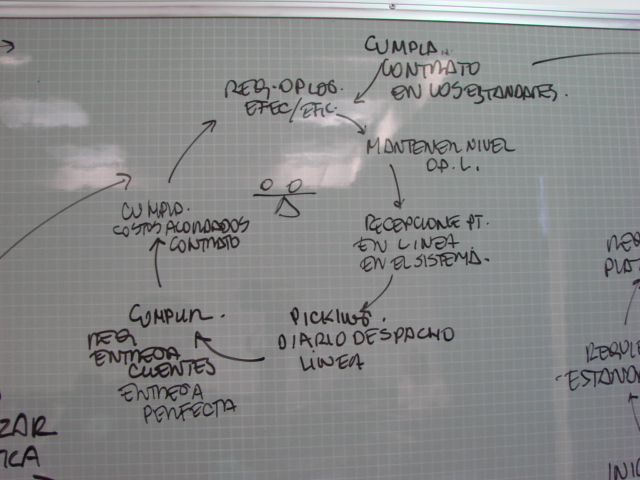 CUMPLA..
CONTRATO
EN LOS ESTANDARES.
REQ. OP LOG.
EFEC/EFIC.
MANTENER NIVEL
OP. L.
RECEPCIONE PT.
EN LINEA
EN EL SISTEMA.
PICKING.
DIARIO DESPACHO
LINEA
CUMPLIR.
REQ
ENTREGA
CLIENTES
ENTREGA
PERFECTA
CUMPLA.
COSTOS ACORDADOS
CONTRATO
ZAR
ICA
REQ
PLA
REQUE
ESTAND
INIC